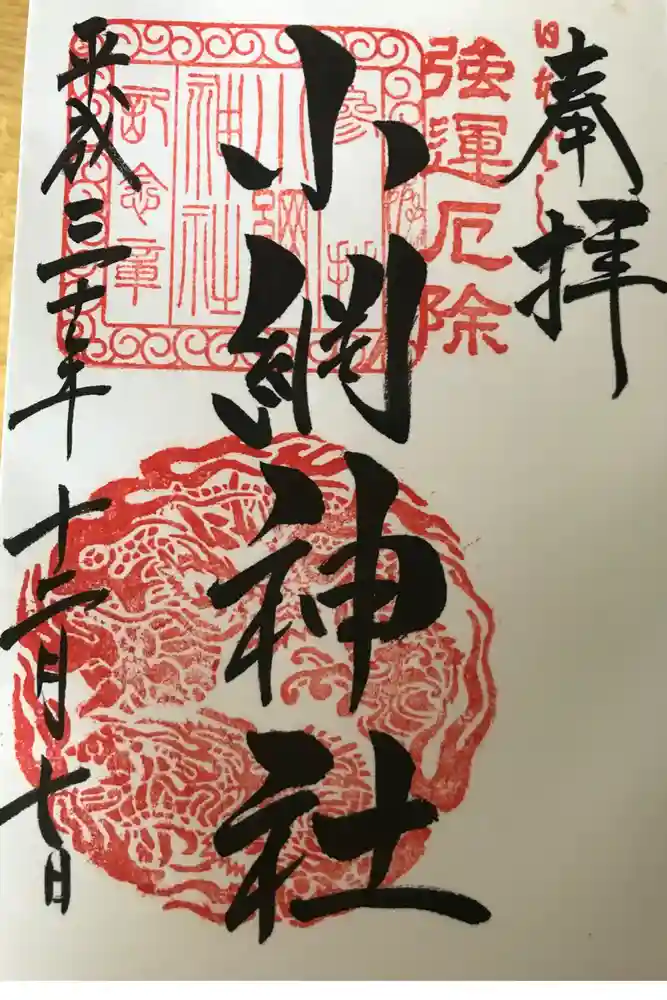 奉拝
強運厄除
小網神社
参拝
小網
神社
記念章
平成三十年十二月七日